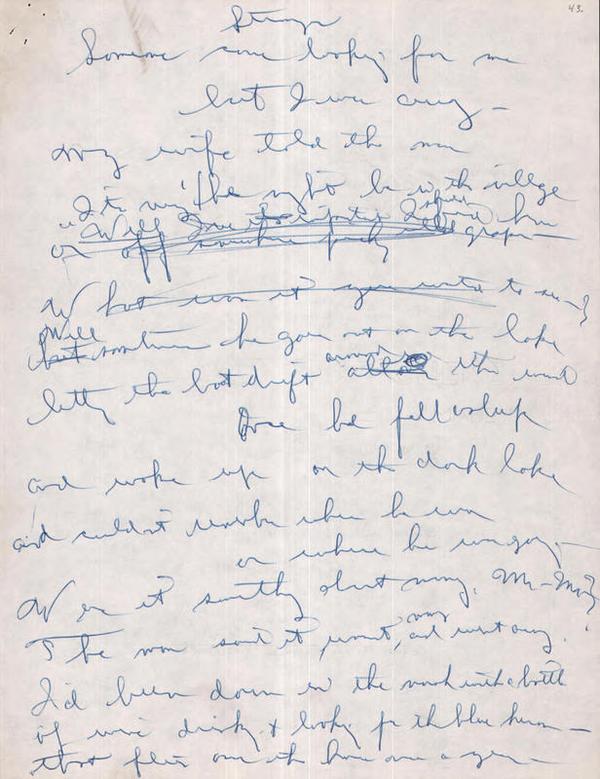 43.
Stranger
Someone came looking for me
but I was away —
My wife told the man
"It might be he's in the village
Will
or off somewhere
What was it you wanted to see
Will
but sometimes he goes out on the lake
letting the boat drift around with the wind
Once he fell asleep
and woke up on the dark lake
and couldn't remember where he was
or where he was going —
Was it something about money, Mr. —
The man said it wasn't, and went away.
I'd been down in the marsh with a bottle
of wine drinking & looking for the blue heron —
that flies over the house once a year —